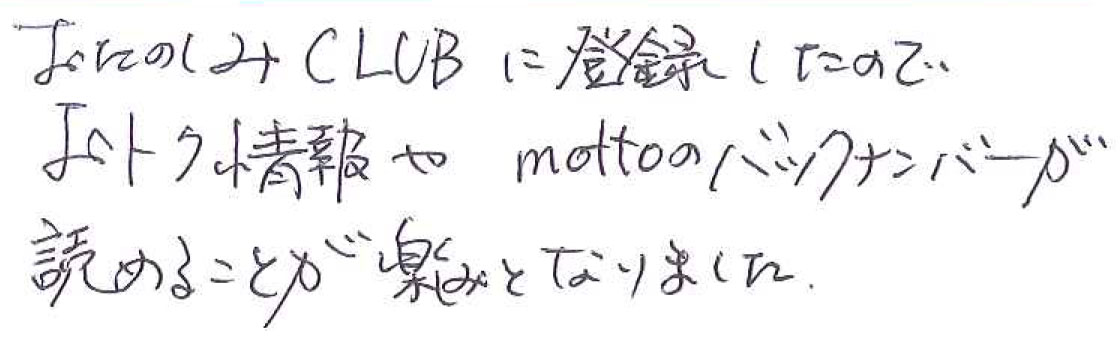 おたのしみCLUBに登録したので、
おトク情報や mottoのバックナンバーが
読めることが楽しみとなりました.